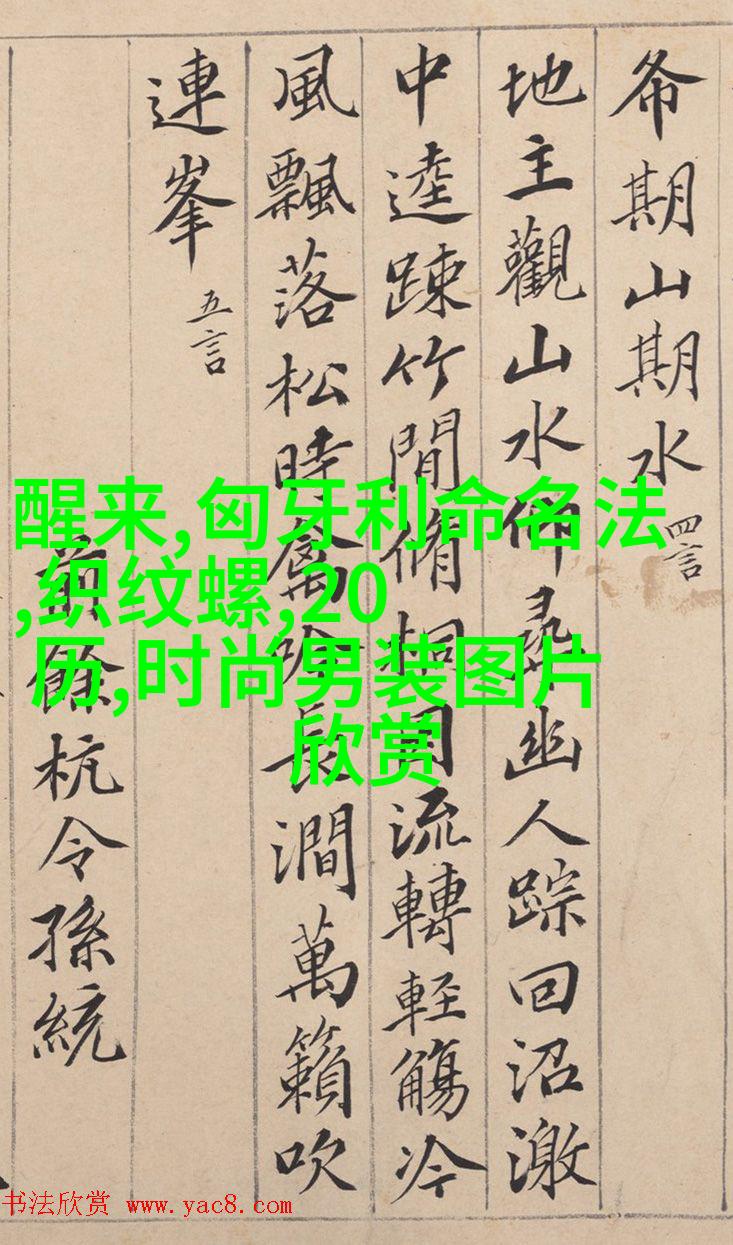 希期山期水 四言
地主觀山水仰尋幽人踪回沼激
中逵踈竹間脩桐因流轉輕觴冷
風飄落松時禽吟長澗萬籟吹
連峯 五言
前餘杭令孫統
醒来,匈牙利命名法
,织纹螺,20
历,时尚男装图片
欣赏
书法欣赏 www.yac8.com